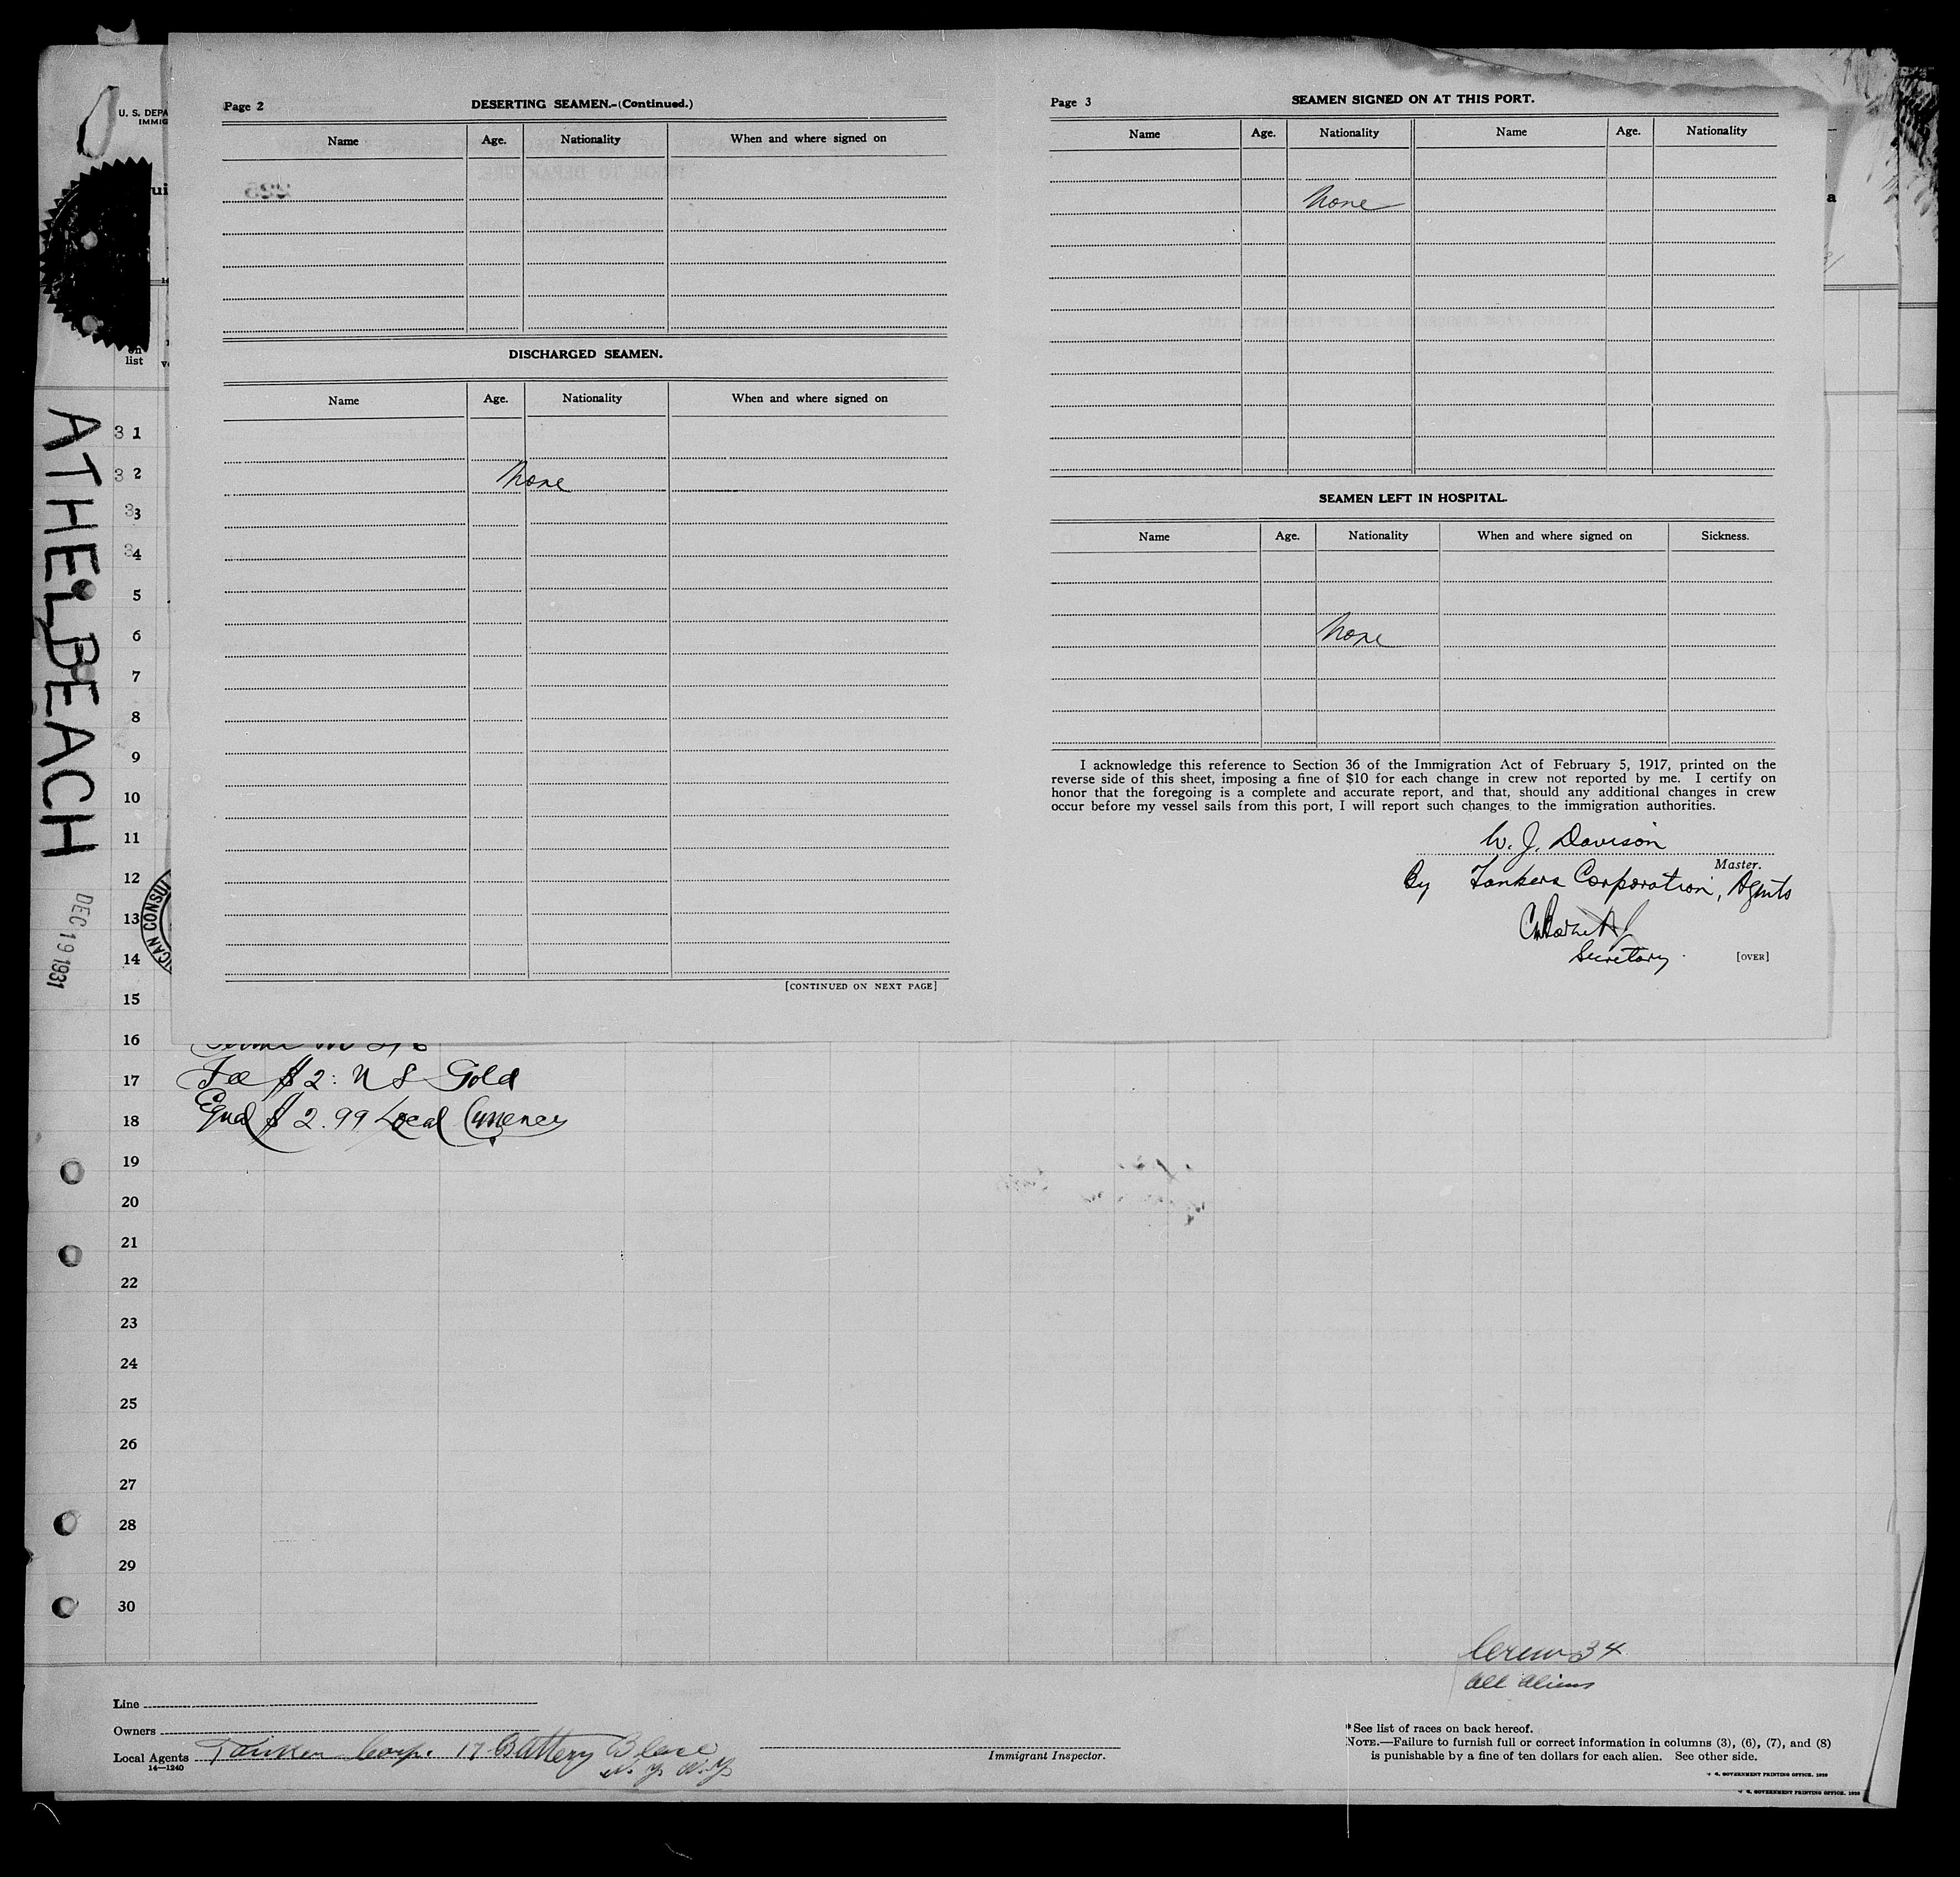 U. S. DEPA
IMMIG
list
ATHELBEACH
DEC 19 1931
ICAN CONSU
Page 2
DESERTING SEAMEN.-(Continued.)
Name Age. Nationality When and where signed on
DISCHARGED SEAMEN.
Name Age. Nationality When and where signed on
None
[CONTINUED ON NEXT PAGE]
Page 3
SEAMEN SIGNED ON AT THIS PORT.
Name Age. Nationality Name Age. Nationality
None
SEAMEN LEFT IN HOSPITAL.
Name Age. Nationality When and where signed on Sickness.
None
I acknowledge this reference to Section 36 of the Immigration Act of February 5, 1917, printed on the
reverse side of this sheet, imposing a fine of $10 for each change in crew not reported by me. I certify on
honor that the foregoing is a complete and accurate report, and that, should any additional changes in crew
occur before my vessel sails from this port, I will report such changes to the immigration authorities.
W. J. Davison
Master.
By Tankers Corporation, Agents
Secretary.
[OVER]
3 1
3 2
3 3
3 4
5
6
7
8
9
10
11
12
13
14
15
16
17 Fee $ 2: U S Gold
18 Equal $ 2.99 Local Currency
19
20
21
22
23
24
25
26
27
28
29
30
Crew 34
all aliens
Line
Owners
Local Agents Tanker Corp. 17 Battery Place
N. Y. N. Y.
14—1240
Immigrant Inspector.
* See list of races on back hereof.
NOTE.—Failure to furnish full or correct information in columns (3), (6), (7), and (8)
is punishable by a fine of ten dollars for each alien. See other side.
GOVERNMENT PRINTING OFFICE
GOVERNMENT PRINTING OFFICE